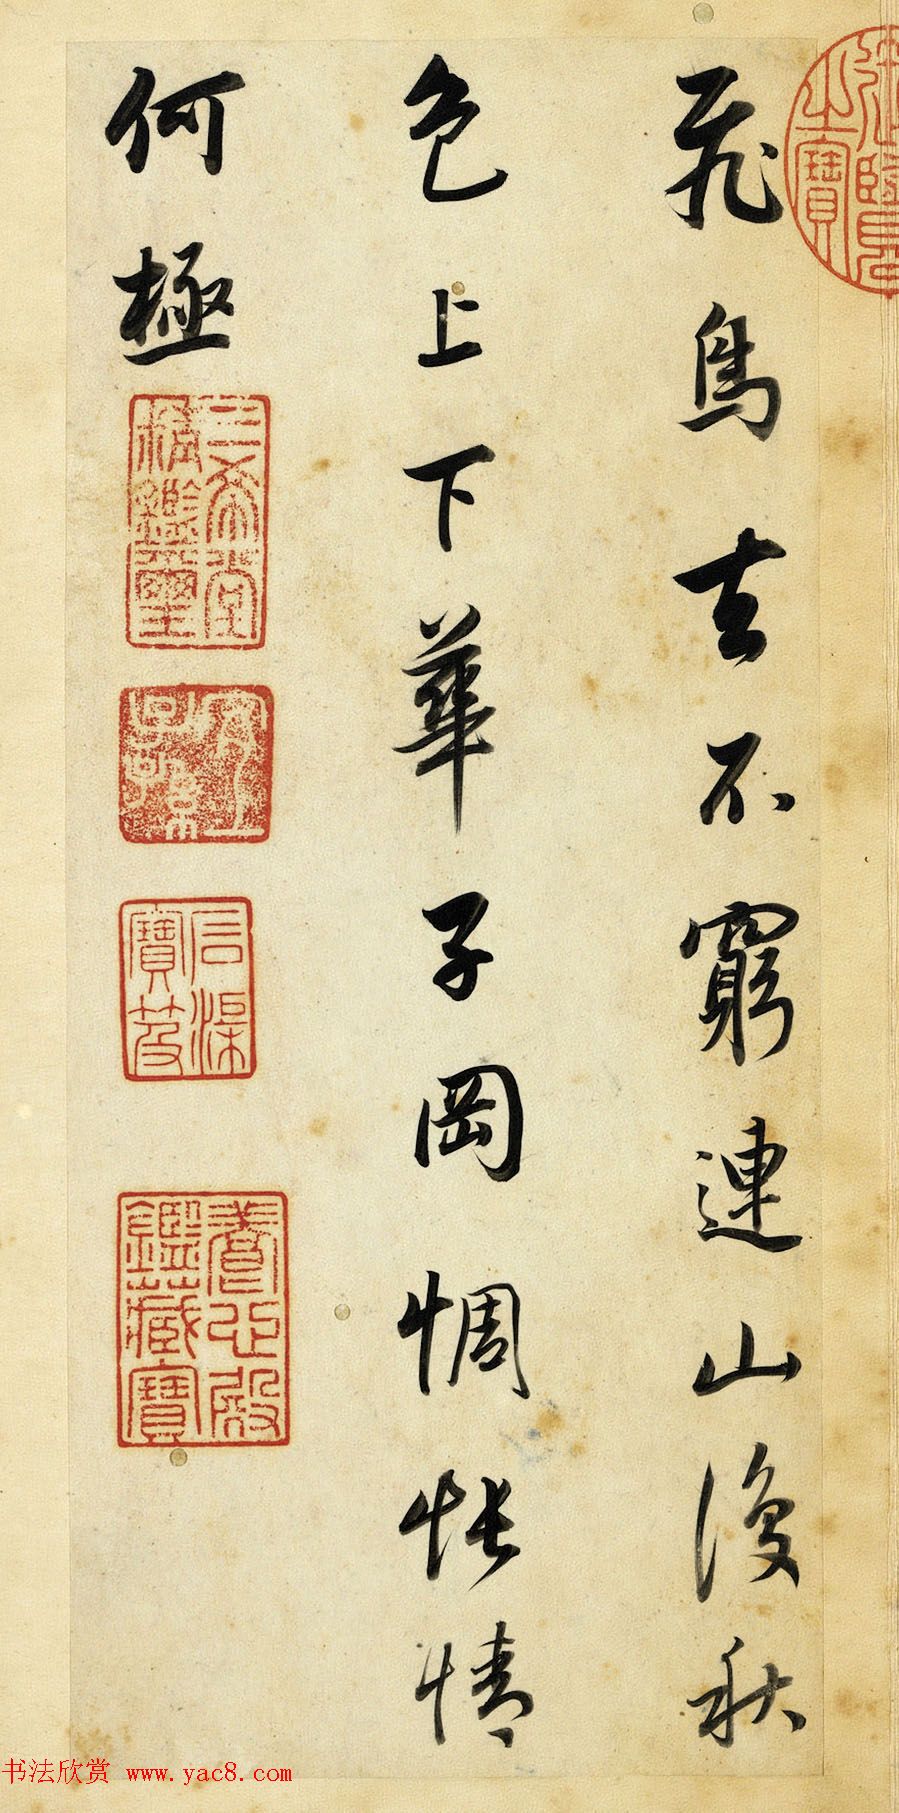 飛鳥去不窮連山復秋
色上下華子岡惆悵情
何極
三希堂
精鑑璽
石渠
寶笈
養心殿
鑑藏寶
书法欣赏 www.yac8.com